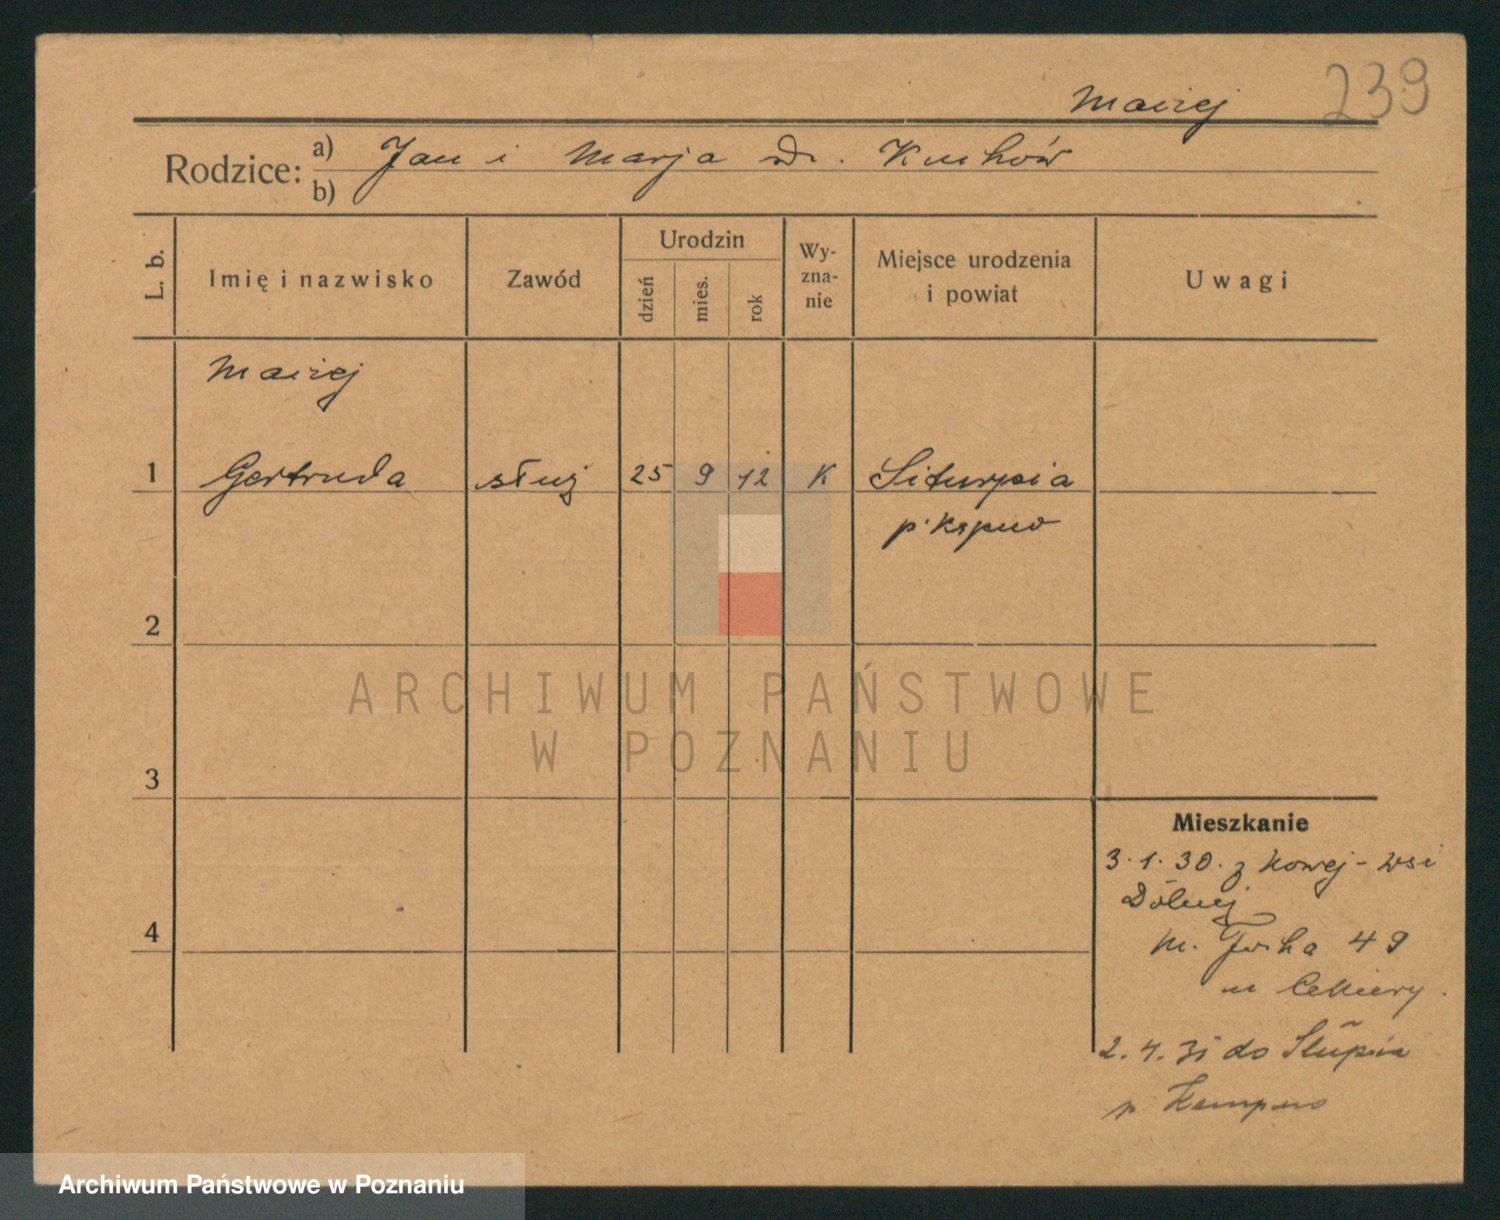 239
Maciej
Rodzice: a) Jan i Marja
b)
L. b.
Imię i nazwisko
Zawód
Urodzin
dzień
mies.
rok
Wy-
zna-
nie
Miejsce urodzenia
i powiat
Uwagi
Maciej
1 Gertruda służ 25 9 12 K
p. Kępno
2
3
4
Mieszkanie
3.1.30. z Nowej-wsi
Dólnej
49
2.4.31 do Słupia
p Kempno
ARCHIWUM PAŃSTWOWE
W POZNANIU
Archiwum Państwowe w Poznaniu